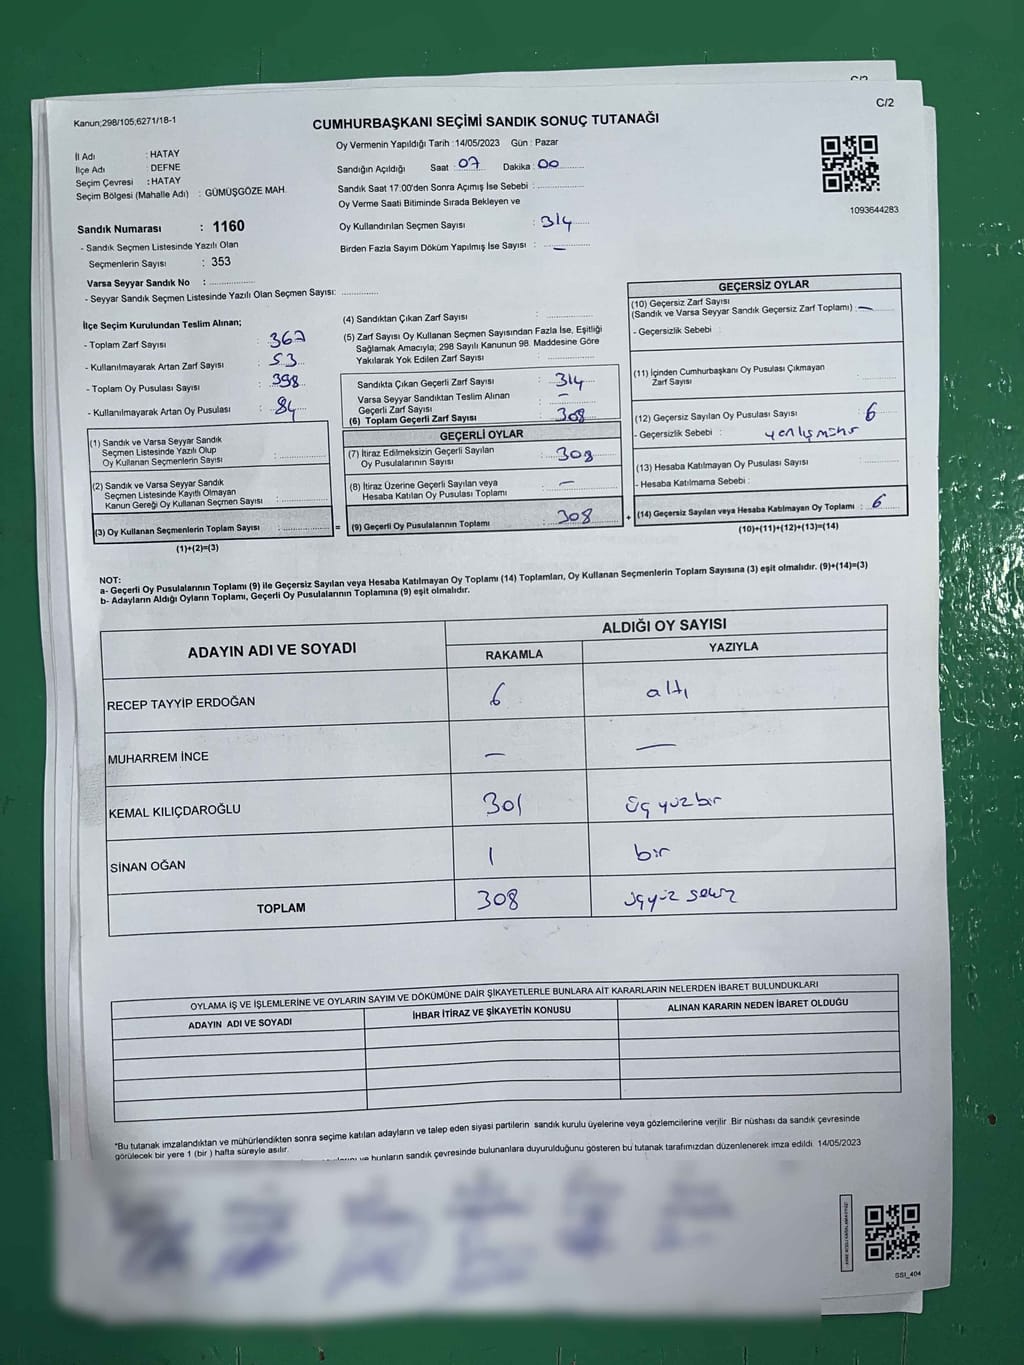 C/2
Kanun;298/105,6271/18-1
C/2
CUMHURBAŞKANI SEÇİMİ SANDIK SONUÇ TUTANAĞI
Oy Vermenin Yapıldığı Tarih :14/05/2023 Gün : Pazar
İl Adı : HATAY
İlçe Adı : DEFNE
Seçim Çevresi : HATAY
Seçim Bölgesi (Mahalle Adı) : GÜMÜŞGÖZE MAH.
Sandığın Açıldığı Saat : 07 Dakika : 00
Sandık Saat 17:00'den Sonra Açımış İse Sebebi :
Oy Verme Saati Bitiminde Sırada Bekleyen ve
Oy Kullandırılan Seçmen Sayısı : 314
Birden Fazla Sayım Döküm Yapılmış İse Sayısı : –
1093644283
Sandık Numarası : 1160
- Sandık Seçmen Listesinde Yazılı Olan
Seçmenlerin Sayısı : 353
Varsa Seyyar Sandık No :
- Seyyar Sandık Seçmen Listesinde Yazılı Olan Seçmen Sayısı:
İlçe Seçim Kurulundan Teslim Alınan;
- Toplam Zarf Sayısı : 367
- Kullanılmayarak Artan Zarf Sayısı : 53
- Toplam Oy Pusulası Sayısı : 398
- Kullanılmayarak Artan Oy Pusulası : 84
(1) Sandık ve Varsa Seyyar Sandık
Seçmen Listesinde Yazılı Olup
Oy Kullanan Seçmenlerin Sayısı :
(2) Sandık ve Varsa Seyyar Sandık
Seçmen Listesinde Kayıtlı Olmayan
Kanun Gereği Oy Kullanan Seçmen Sayısı :
(3) Oy Kullanan Seçmenlerin Toplam Sayısı : =
(1)+(2)=(3)
(4) Sandıktan Çıkan Zarf Sayısı :
(5) Zarf Sayısı Oy Kullanan Seçmen Sayısından Fazla İse, Eşitliği
Sağlamak Amacıyla; 298 Sayılı Kanunun 98. Maddesine Göre
Yakılarak Yok Edilen Zarf Sayısı :
Sandıkta Çıkan Geçerli Zarf Sayısı : 314
Varsa Seyyar Sandıktan Teslim Alınan
Geçerli Zarf Sayısı : –
(6) Toplam Geçerli Zarf Sayısı : 308
GEÇERLİ OYLAR
(7) İtiraz Edilmeksizin Geçerli Sayılan
Oy Pusulalarının Sayısı : 308
(8) İtiraz Üzerine Geçerli Sayılan veya
Hesaba Katılan Oy Pusulası Toplamı : –
(9) Geçerli Oy Pusulalarının Toplamı : 308 +
GEÇERSİZ OYLAR
(10) Geçersiz Zarf Sayısı
(Sandık ve Varsa Seyyar Sandık Geçersiz Zarf Toplamı) : –
- Geçersizlik Sebebi :
(11) İçinden Cumhurbaşkanı Oy Pusulası Çıkmayan
Zarf Sayısı :
(12) Geçersiz Sayılan Oy Pusulası Sayısı : 6
- Geçersizlik Sebebi : yanlış mühür
(13) Hesaba Katılmayan Oy Pusulası Sayısı :
- Hesaba Katılmama Sebebi :
(14) Geçersiz Sayılan veya Hesaba Katılmayan Oy Toplamı : 6
(10)+(11)+(12)+(13)=(14)
NOT:
a- Geçerli Oy Pusulalarının Toplamı (9) ile Geçersiz Sayılan veya Hesaba Katılmayan Oy Toplamı (14) Toplamları, Oy Kullanan Seçmenlerin Toplam Sayısına (3) eşit olmalıdır. (9)+(14)=(3)
b- Adayların Aldığı Oyların Toplamı, Geçerli Oy Pusulalarının Toplamına (9) eşit olmalıdır.
ADAYIN ADI VE SOYADI
ALDIĞI OY SAYISI
RAKAMLA YAZIYLA
RECEP TAYYİP ERDOĞAN 6 altı
MUHARREM İNCE – –
KEMAL KILIÇDAROĞLU 301 üç yüz bir
SİNAN OĞAN 1 bir
TOPLAM 308 üçyüz sekiz
OYLAMA İŞ VE İŞLEMLERİNE VE OYLARIN SAYIM VE DÖKÜMÜNE DAİR ŞİKAYETLERLE BUNLARA AİT KARARLARIN NELERDEN İBARET BULUNDUKLARI
ADAYIN ADI VE SOYADI İHBAR İTİRAZ VE ŞİKAYETİN KONUSU ALINAN KARARIN NEDEN İBARET OLDUĞU
*Bu tutanak imzalandıktan ve mühürlendikten sonra seçime katılan adayların ve talep eden siyasi partilerin sandık kurulu üyelerine veya gözlemcilerine verilir. Bir nüshası da sandık çevresinde
görülecek bir yere 1 (bir ) hafta süreyle asılır.
bunların sandık çevresinde bulunanlara duyurulduğunu gösteren bu tutanak tarafımızdan düzenlenerek imza edildi. 14/05/2023
SSI_404